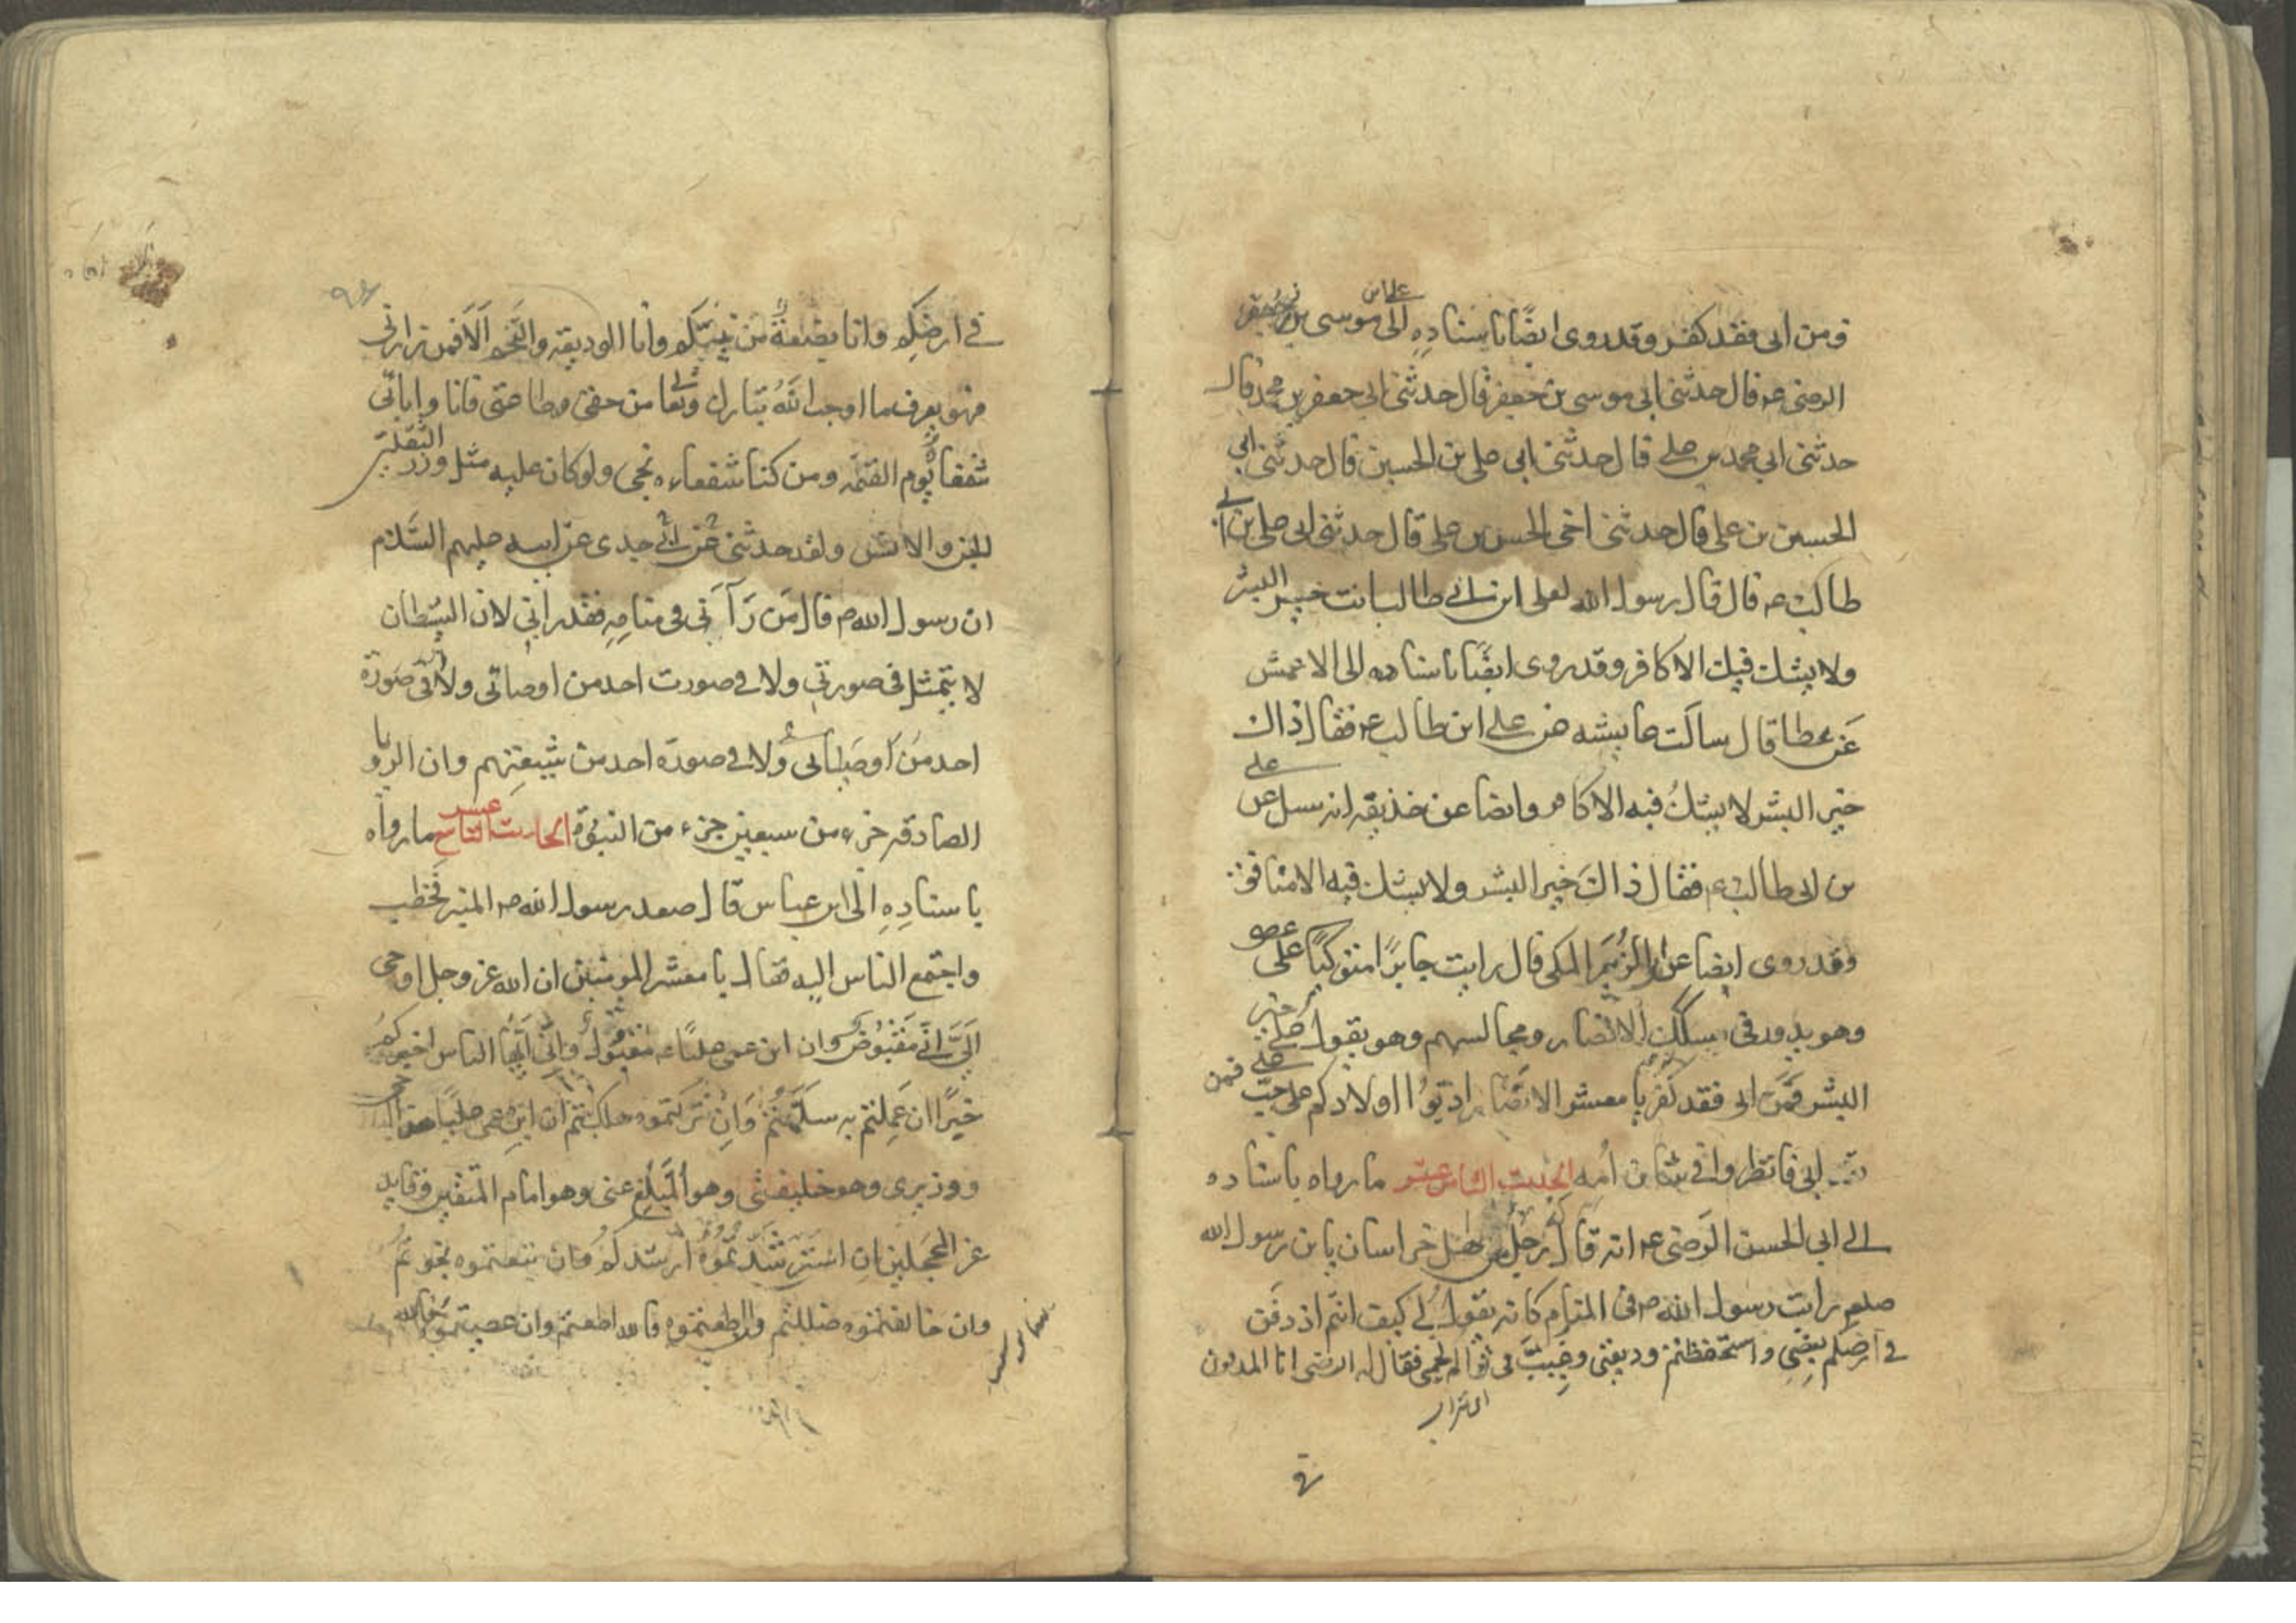 ومن ابى فقد كفر وقد روى ايضًا باسناده الى على بن موسى بن جعفر
الرضى عم قال حدثنى ابى موسى بن جعفر قال حدثنى ابى جعفر بن محمد قال
حدثنى ابى محمد بن على قال حدثنى ابى على بن الحسين قال حدثنى ابى
الحسين بن على قال حدثنى اخى الحسن بن على قال حدثنى ابى على بن ابى
طالب عم قال قال رسول الله لعلى ابن ابى طالب انت خير البشر
ولا يشك فيك الا كافر وقد روى ايضًا باسناده الى الاعمش
عن عطا قال سالت عايشه عن على ابن طالب عم فقال ذاك
خير البشر لا يشكُ فيه الا كافر وايضا عن حذيقه انه سىل عن على
بن ابى طالب عم فقال ذاكَ خير البشر ولا يشك فيه الا منافق
وقد روى ايضا عن ابى الزبير المكى قال رايت جابرًا متوكيًا على عصو
وهو يدور فى سكك الانصار ومجالسهم وهو يقول على خير
البشر فمن ابى فقد كفر يا معشر الانصار ادبوا اولادكم على حب على فمن
ابى فانظروا فى شان اُمه الحديث الثامن عشر ما رواه باسناده
الى ابى الحسن الرضى عم انه قال له رجل من اهل خراسان يا بن رسول الله
صلعم رايت رسول الله ص فى المنام كانه يقول لى كيف انتم اذ دفن
فى ارضكم بعضى واستحفظتم وديعتى وغيبّ فى ثراكم لحمى فقال له الرضى انا المدفون
فى ارضكم وانا بضعةٌ من نبيّكم وانا الوديعه والنجم اَلا فمن زارنى
وهو يعرف ما اوجب اللّه تبارك وتعالى من حقى وطاعتى فانا واباىى
شفعاؤه يوم القيمه ومن كنا شفعاءه نجى ولو كان عليه مثل وزر الثقلين
الجن والانس ولقد حدثنى عن ابى جدى عن ابيه عليهم السَّلام
ان رسول الله ص قال مَن رَآنى فى منامِهِ فقد رانى لان الشيطان
لا يتمثل فى صورتى ولا فى صورت احد من اوصاىى ولا فى صورة
احد من اوصياىى ولا فى صورة احد من شيعتهم وان الرويا
الصادقه جزء من سبعين جزء من النبوّة الحديث التاسع عشر ما رواه
باسنادِهِ الى ابن عباس قال صعد رسول الله ص المنبر فخطب
واجتمع الناس اليه فقال يا معشر المومنين ان الله عز وجل اوحى
الىَّ انى مَقبُوضٌ وان ابن عمى عليًا مقتول وانى ايها الناس اخبركم
خبرًا ان عملتم به سلمتم وَان تركتموه هلكتم ان ابن عمى عليًا هو اخى
ووزيرى وهو خليفتى وهو المُبلّغ عنى وهو امام المتقين وقايد
غر المحجلين ان استرشدتموه ارشدكم وان تبعتموه نجوتم
وان خالفتموه ضللتم وان اطعتموه فالله اطعتم وان عصيتموه فالله